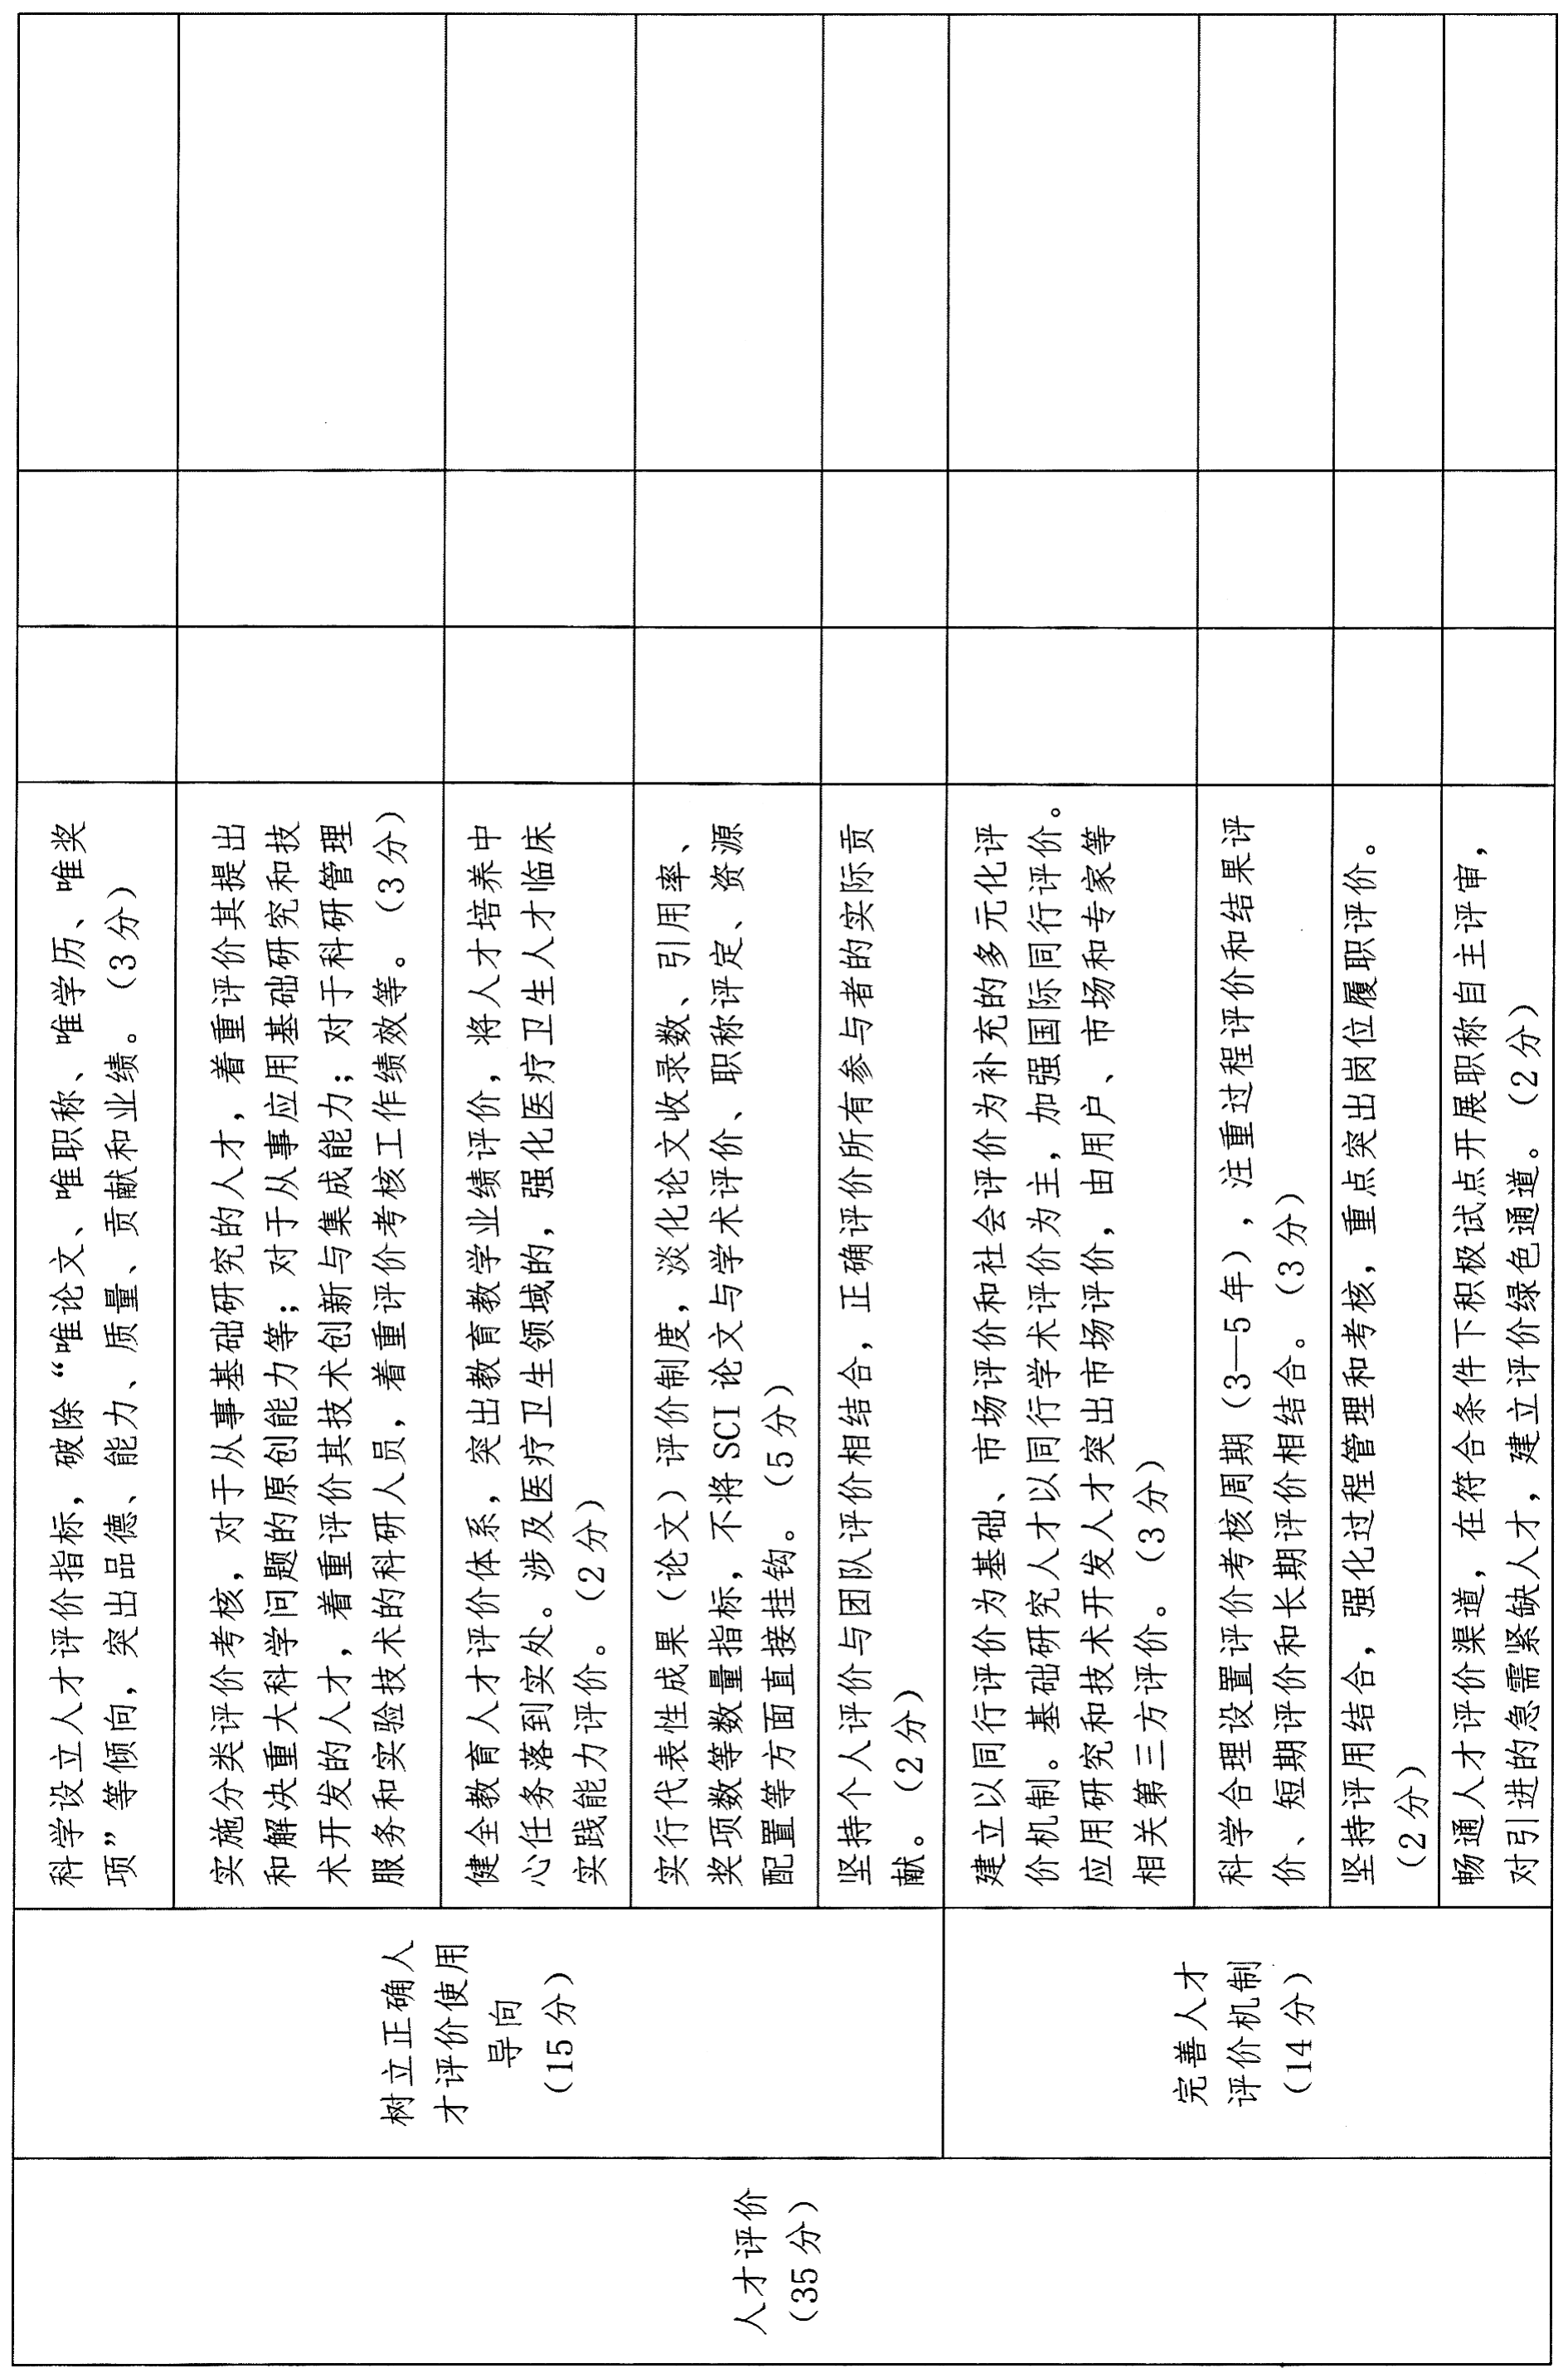 人才评价
（35 分）
树立正确人
才评价使用
导向
（15 分）
科学设立人才评价指标，破除“唯论文、唯职称、唯学历、唯奖
项”等倾向，突出品德、能力、质量、贡献和业绩。（3 分）
实施分类评价考核，对于从事基础研究的人才，着重评价其提出
和解决重大科学问题的原创能力等；对于从事应用基础研究和技
术开发的人才，着重评价其技术创新与集成能力；对于科研管理
服务和实验技术的科研人员，着重评价考核工作绩效等。（3 分）
健全教育人才评价体系，突出教育教学业绩评价，将人才培养中
心任务落到实处。涉及医疗卫生领域的，强化医疗卫生人才临床
实践能力评价。（2 分）
实行代表性成果（论文）评价制度，淡化论文收录数、引用率、
奖项数等数量指标，不将 SCI 论文与学术评价、职称评定、资源
配置等方面直接挂钩。（5 分）
坚持个人评价与团队评价相结合，正确评价所有参与者的实际贡
献。（2 分）
完善人才
评价机制
（14 分）
建立以同行评价为基础、市场评价和社会评价为补充的多元化评
价机制。基础研究人才以同行学术评价为主，加强国际同行评价。
应用研究和技术开发人才突出市场评价，由用户、市场和专家等
相关第三方评价。（3 分）
科学合理设置评价考核周期（3—5 年），注重过程评价和结果评
价、短期评价和长期评价相结合。（3 分）
坚持评用结合，强化过程管理和考核，重点突出岗位履职评价。
（2 分）
畅通人才评价渠道，在符合条件下积极试点开展职称自主评审，
对引进的急需紧缺人才，建立评价绿色通道。（2 分）